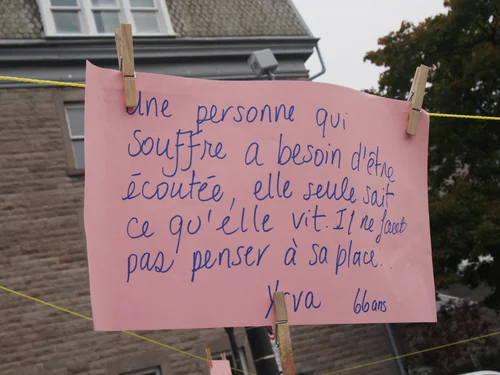 Une personne qui
souffre a besoin d'être
écoutée, elle seule sait
ce qu'elle vit. Il ne faut
pas penser à sa place.
66ans